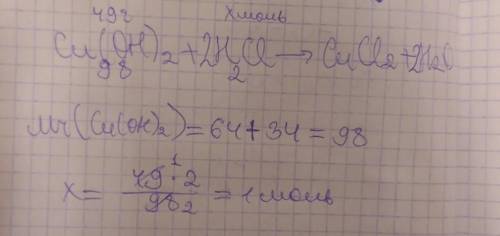 49г xмоль
Cu(OH)2+2HCl→CuCl2+2H2O
98 2
Mr(Cu(OH)2)=64+34=98
x= 49·2 1 / 98 2 =1моль